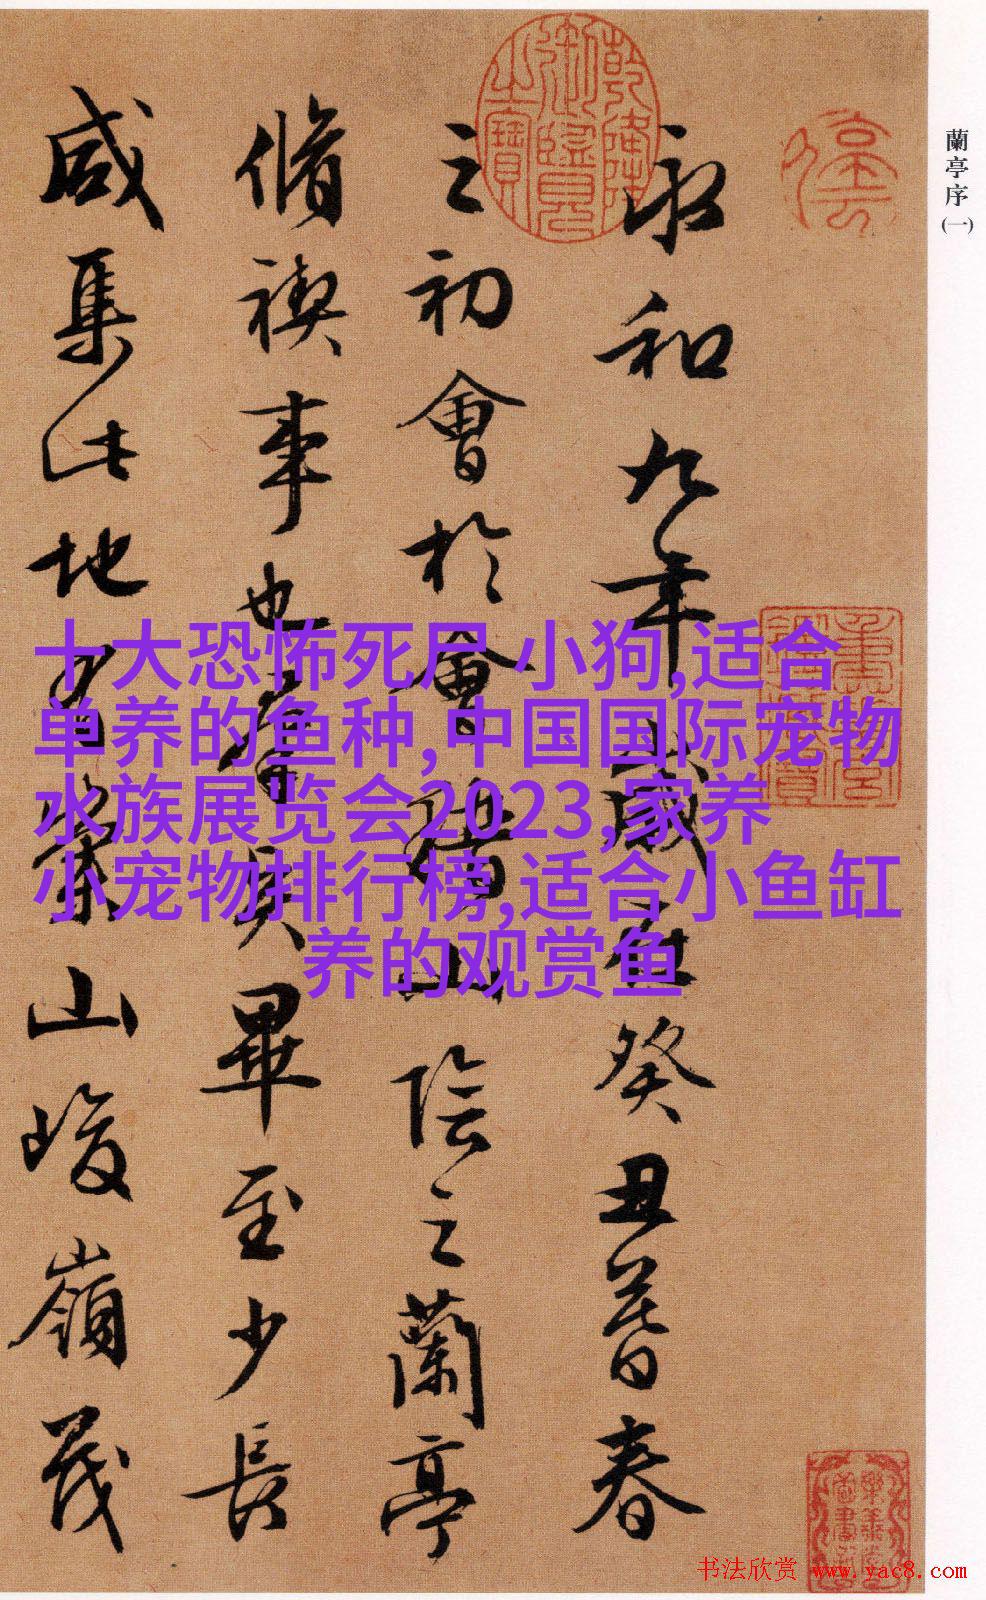 蘭亭序(一)
永和九年歲在癸丑暮春
之初會於會稽山陰之蘭亭
脩禊事也羣賢畢至少長
咸集此地有崇山峻嶺茂
乾隆御覽之寶
十大恐怖死尸 小狗,适合
单养的鱼种,中国国际宠物
水族展览会2023,家养
小宠物排行榜,适合小鱼缸
养的观赏鱼
书法欣赏 www.yac8.com